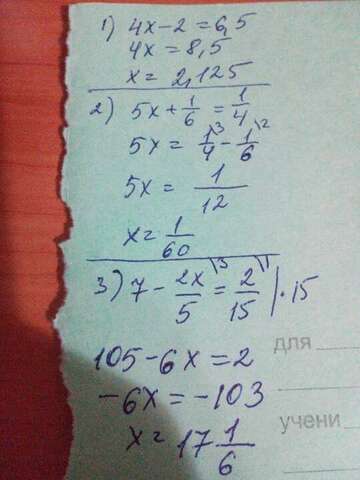 1) 4x-2=6,5
4x=8,5
x=2,125
2) 5x+1/6=1/4
5x=1/4\3-1/6\2
5x=1/12
x=1/60
3) 7-2x/5\3=2/15\1|·15
для
105-6x=2
-6x=-103
учени
x=17 1/6